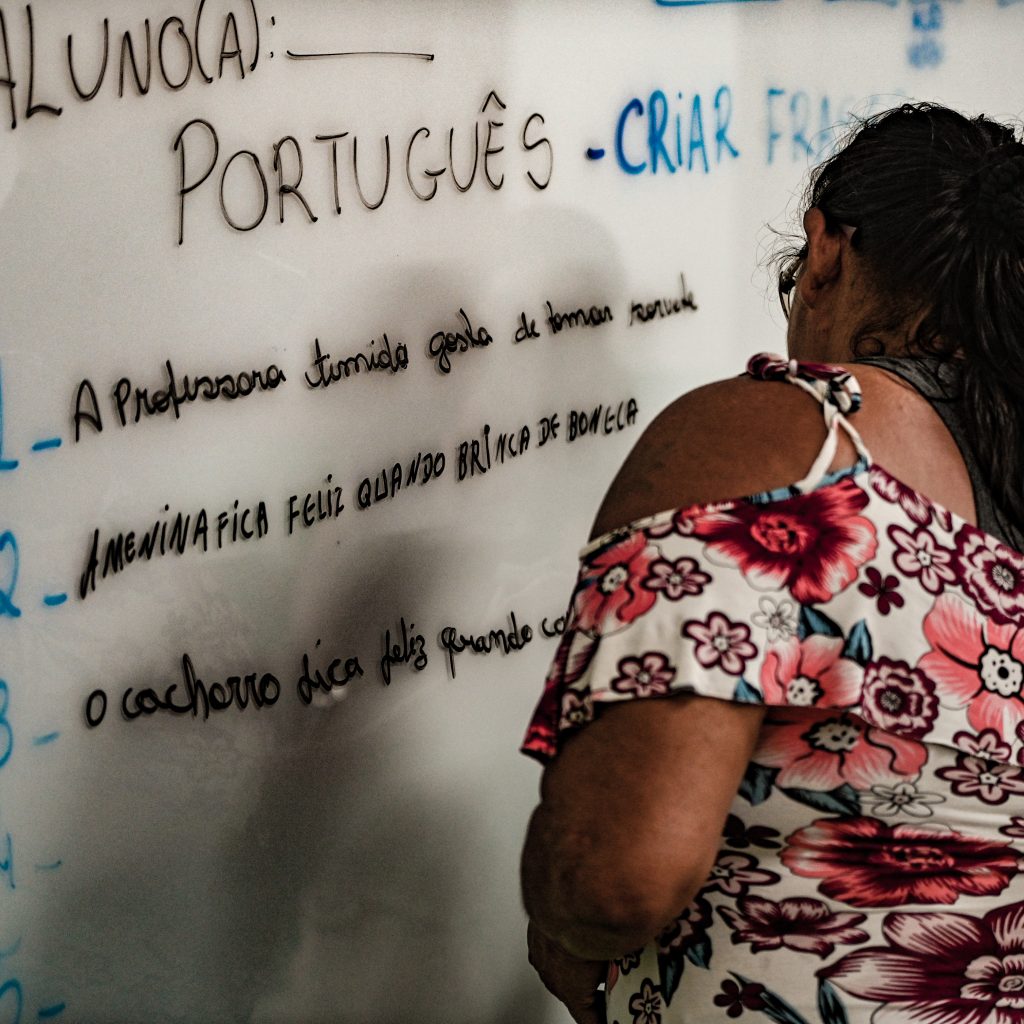 ALUNO(A): ______
PORTUGUÊS - CRIAR FRASES
1- A Professora timida gosta de tomar sorvete
2- A MENINA FICA FELIZ QUANDO BRINCA DE BONECA
3- O cachorro fica feliz quando co
4-
5-